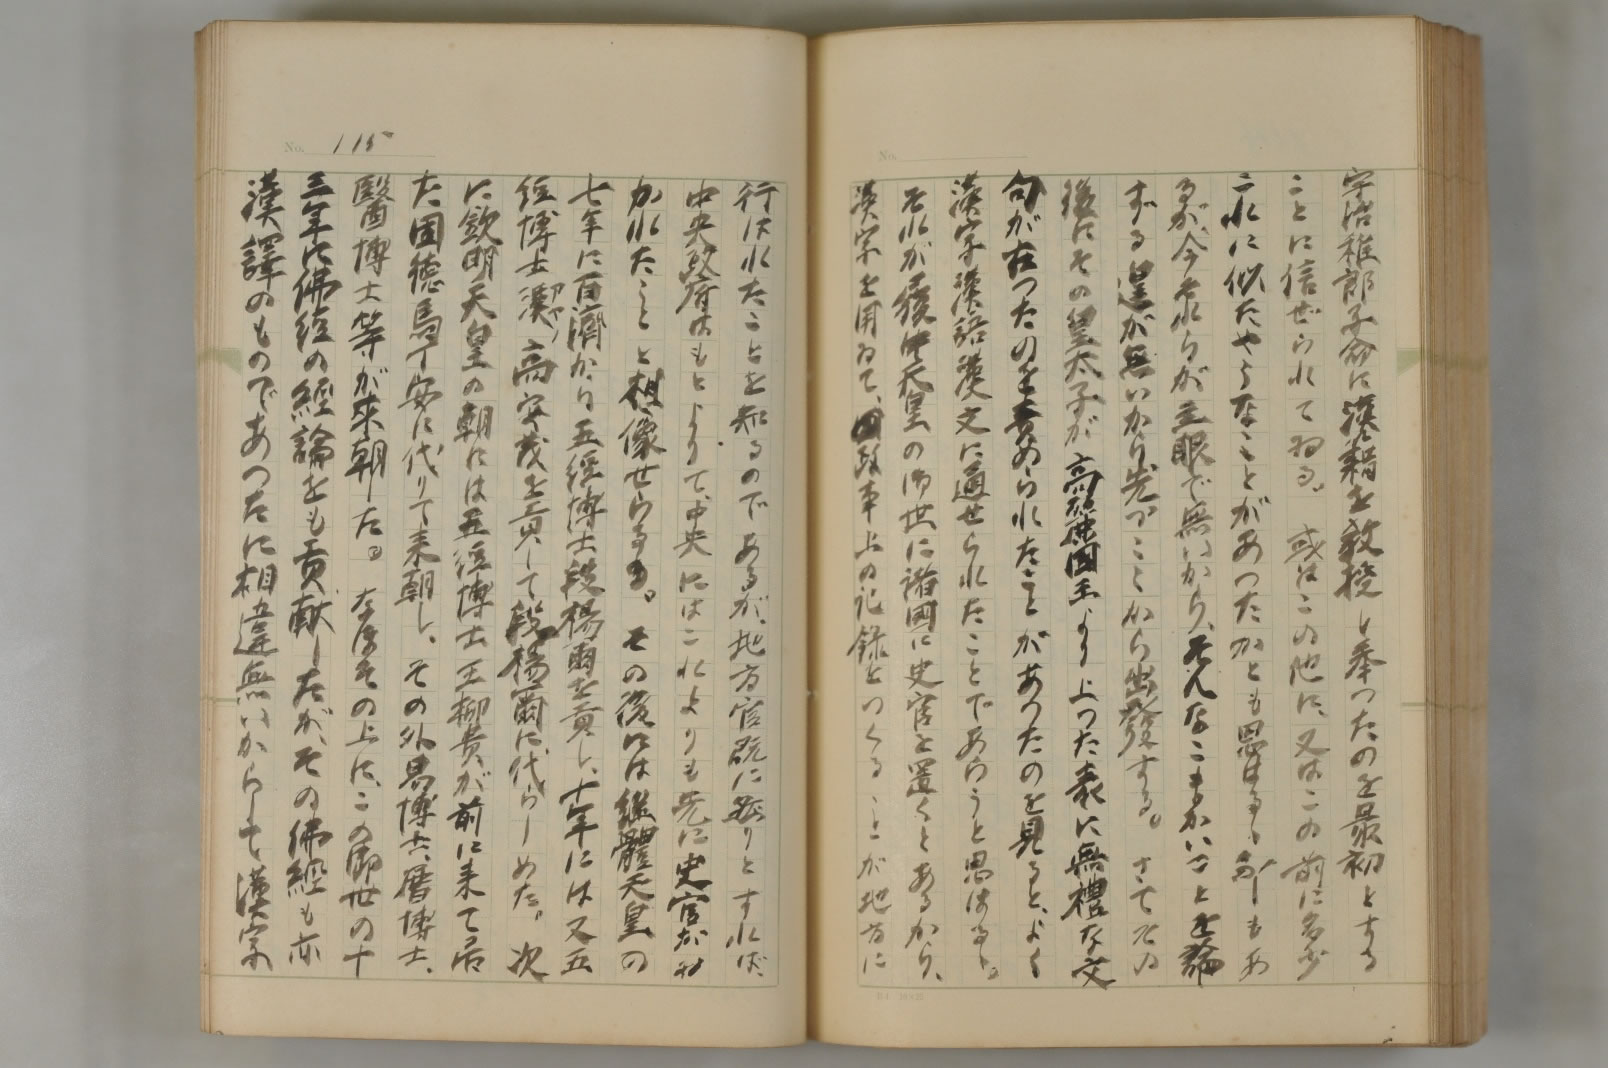 宇治稚郎子命に漢籍を教授し奉つたのを最初とする
ことに信ぜられて居る。或はこの他に、又はこの前に多少
これに似たやうなことがあつたかとも思はるゝ節もあ
るが、今それらが主眼で無いから、そんなこまかいことを論
ずる遑が無いから先づここから出發する。さてその
後にその皇太子が高麗國王より上つた表に無禮な文
句が在つたのを責められたことがあつたのを見ると、よく
漢字漢語漢文に通ぜられたことであらうと思はるゝ。
それが履中天皇の御世に諸國に史官を置くとあるから、
漢字を用ゐて、政事上の記録をつくることが地方に
No. 115
行はれたことを知るのであるが、地方官既に然りとすれば、
中央政府はもとよりて、中央にはこれよりも先に史官が
かれたことと想像せらるゝ。その後には繼體天皇の
七年に百濟から五經博士段楊爾を貢し、十年には又五
經博士漢高安茂を貢して段楊爾に代らしめた。次
に欽明天皇の朝には五經博士王柳貴が前に来て居
た固德馬丁安に代りて来朝し、その外易博士、暦博士、
醫博士等が來朝した。なほその上に、この御世の十
三年に佛經の經論をも貢献したが、その佛經も亦
漢譯のものであつたに相違無いからして漢字